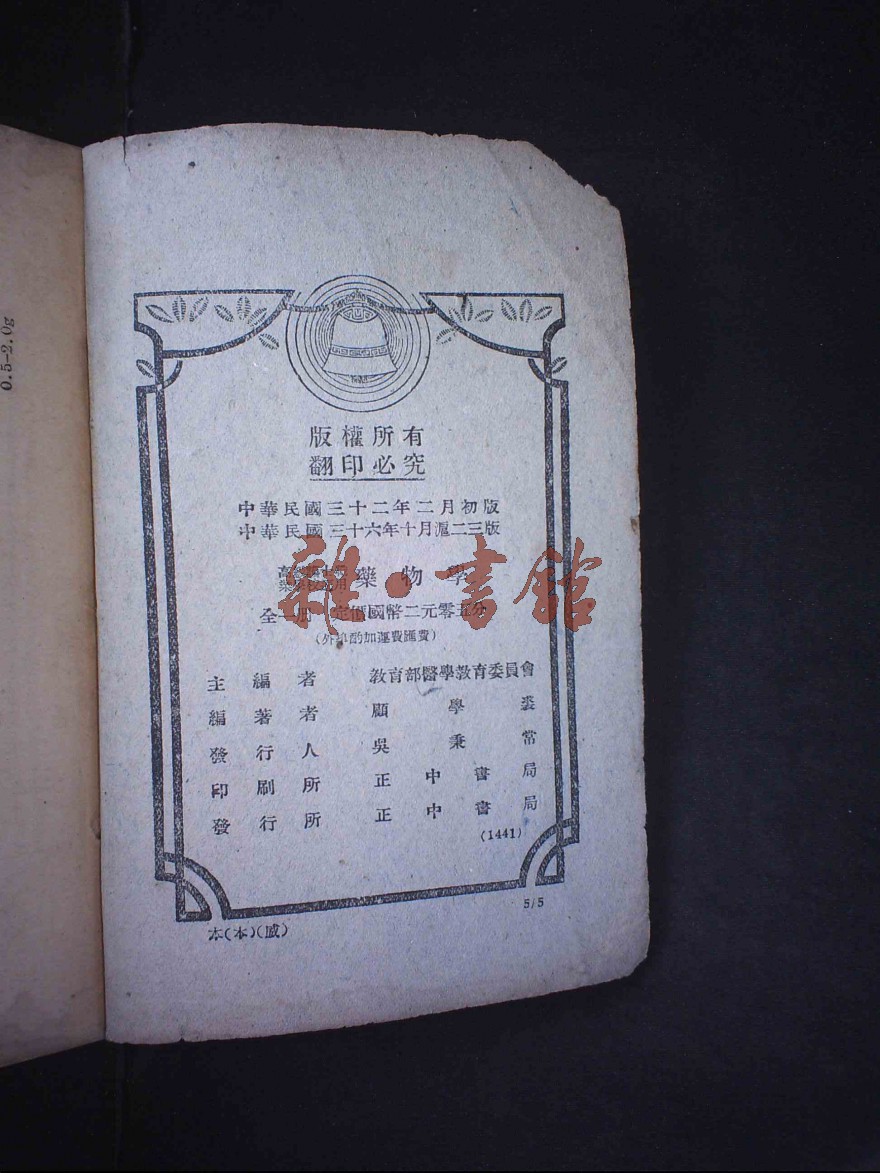 0.5-2.0g
版權所有
翻印必究
中華民國三十二年二月初版
中華民國三十六年十月滬二三版
藥物學
全一册 定價國幣二元零五分
(外埠酌加運費匯費)
主編者 教育部醫學教育委員會
編著者 顧學裘
發行人 吳秉常
印刷所 正中書局
發行所 正中書局
(1441)
5/5
本(本)(威)
雜·書館